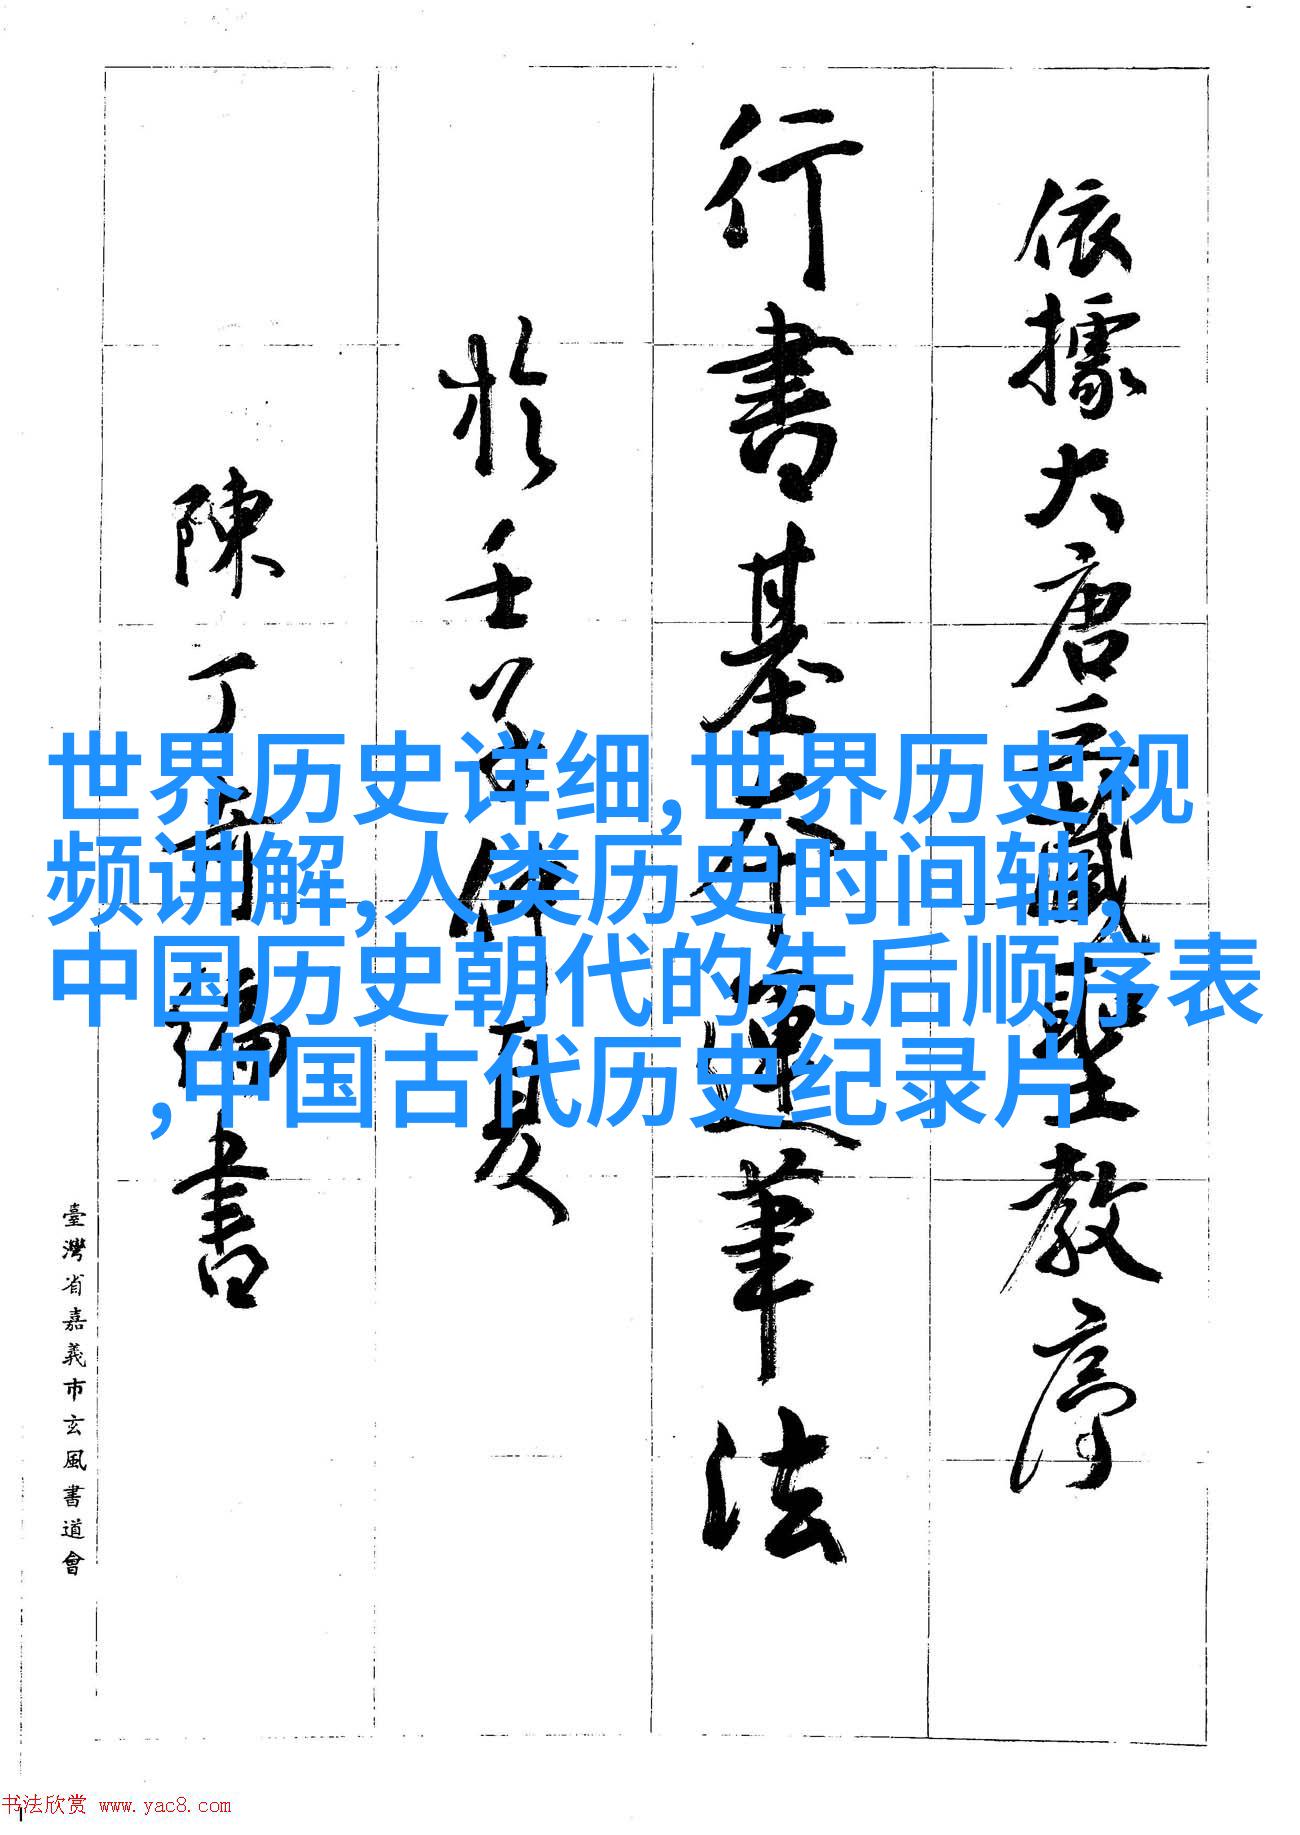 依據大唐三藏聖教序
行書基本運筆法
於壬子仲夏
陳丁奇編書
臺灣省嘉義市玄風書道會
世界历史详细,世界历史视
频讲解,人类历史时间轴,
中国历史朝代的先后顺序表
,中国古代历史纪录片
书法欣赏 www.yac8.com